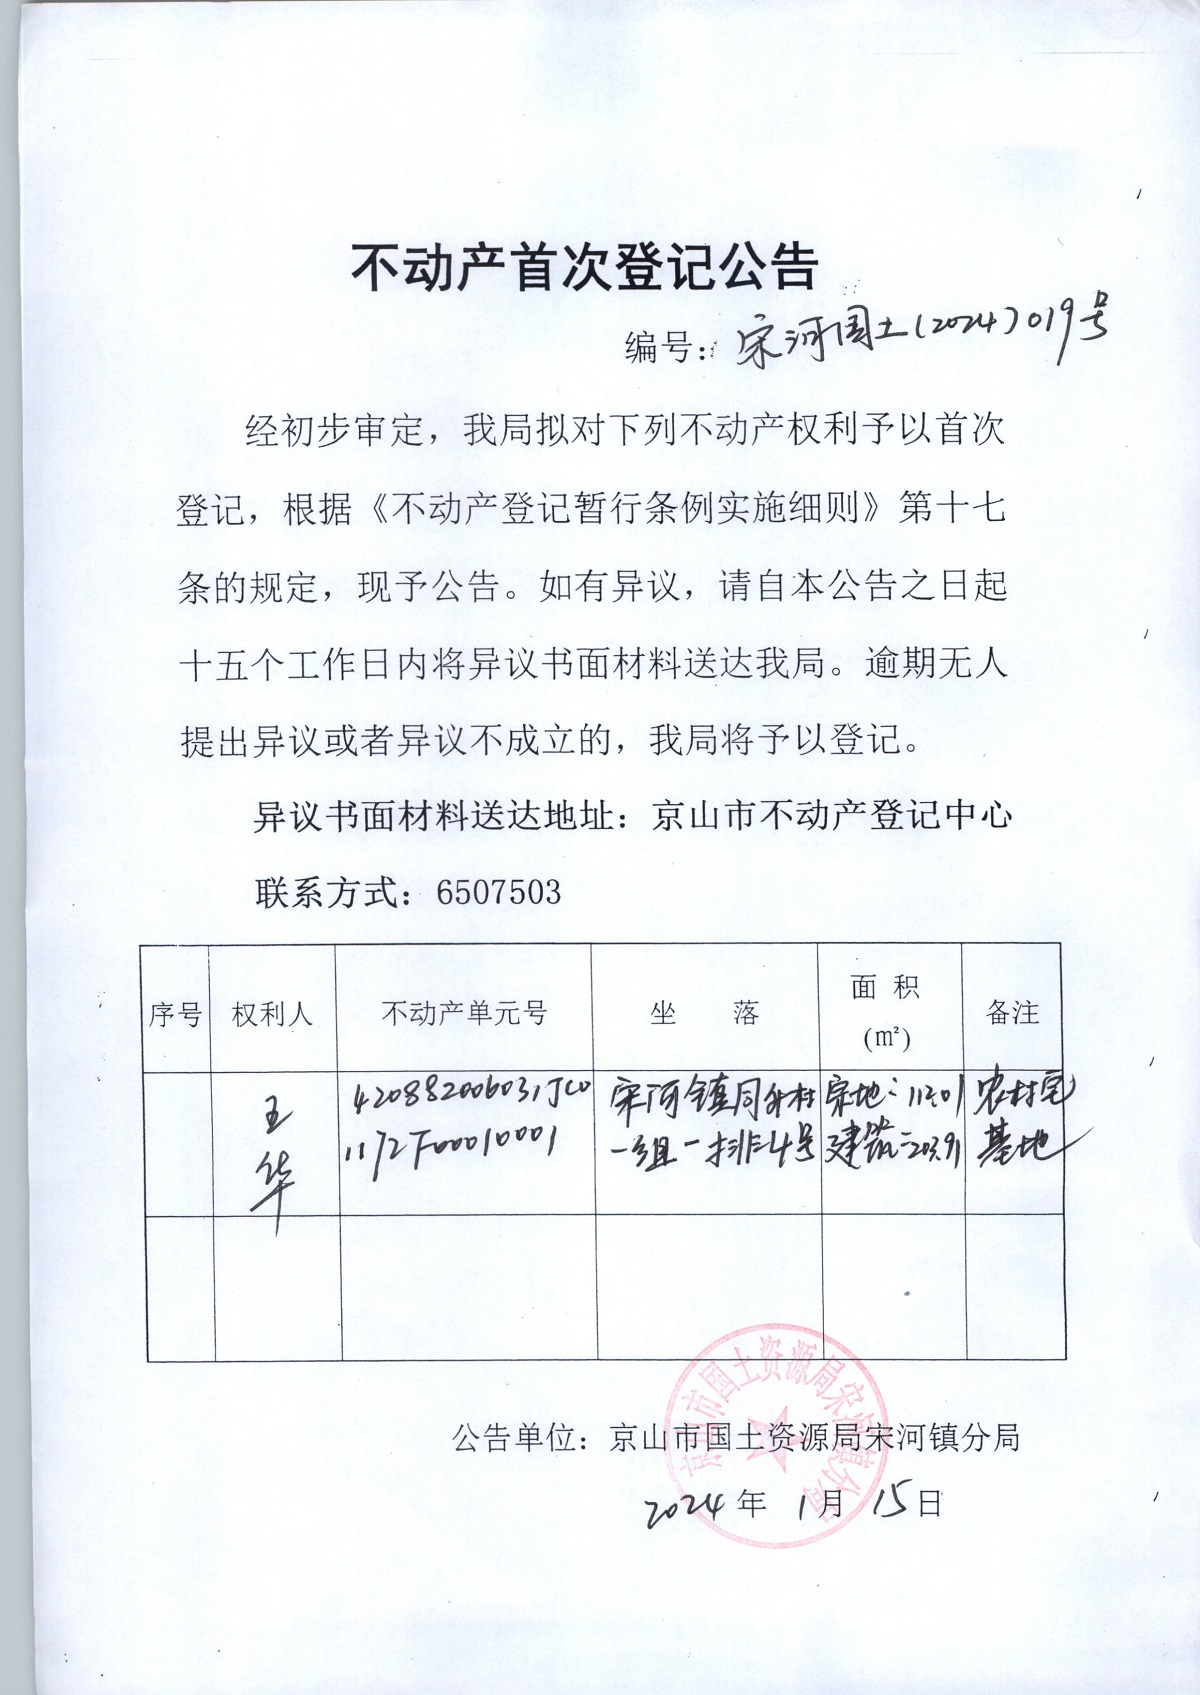 不动产首次登记公告
编号：宋河国土(2024)019号
经初步审定，我局拟对下列不动产权利予以首次
登记，根据《不动产登记暂行条例实施细则》第十七
条的规定，现予公告。如有异议，请自本公告之日起
十五个工作日内将异议书面材料送达我局。逾期无人
提出异议或者异议不成立的，我局将予以登记。
异议书面材料送达地址：京山市不动产登记中心
联系方式：6507503
序号 权利人 不动产单元号 坐 落 面 积 (㎡) 备注
王华 420882006031JC01172F00010001 宋河镇同升村一组一排4号 宗地：112.01 建筑：203.91 农村宅基地
京山市国土资源局宋河镇分局
公告单位：京山市国土资源局宋河镇分局
2024年1月15日